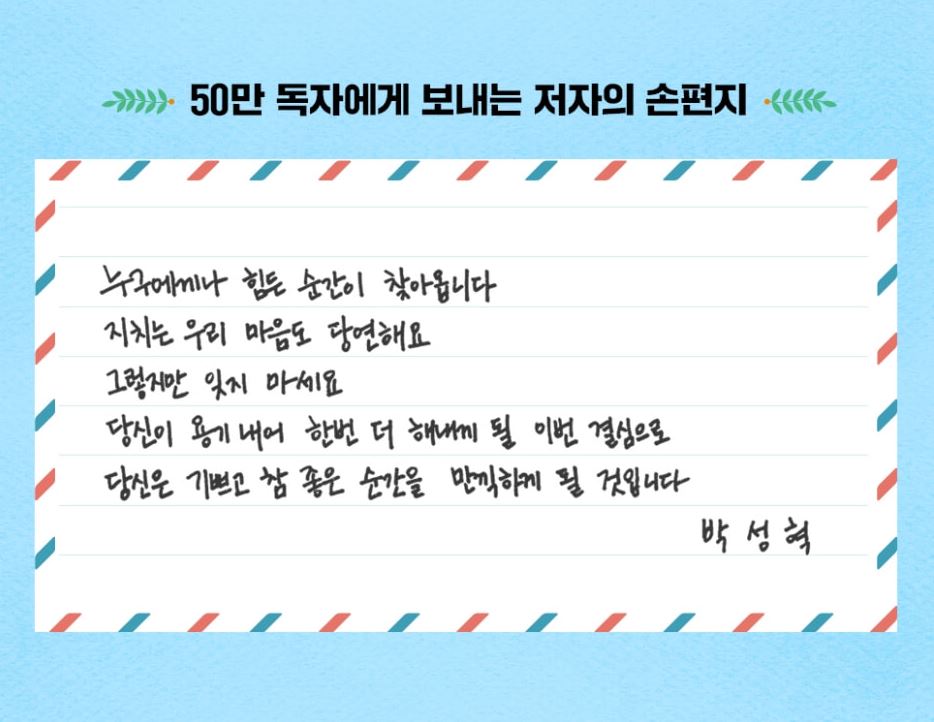 50만 독자에게 보내는 저자의 손편지
누구에게나 힘든 순간이 찾아옵니다
지치는 우리 마음도 당연해요
그렇지만 잊지 마세요
당신이 용기 내어 한번 더 해내게 될 이번 결심으로
당신은 기쁘고 참 좋은 순간을 만끽하게 될 것입니다
박성혁